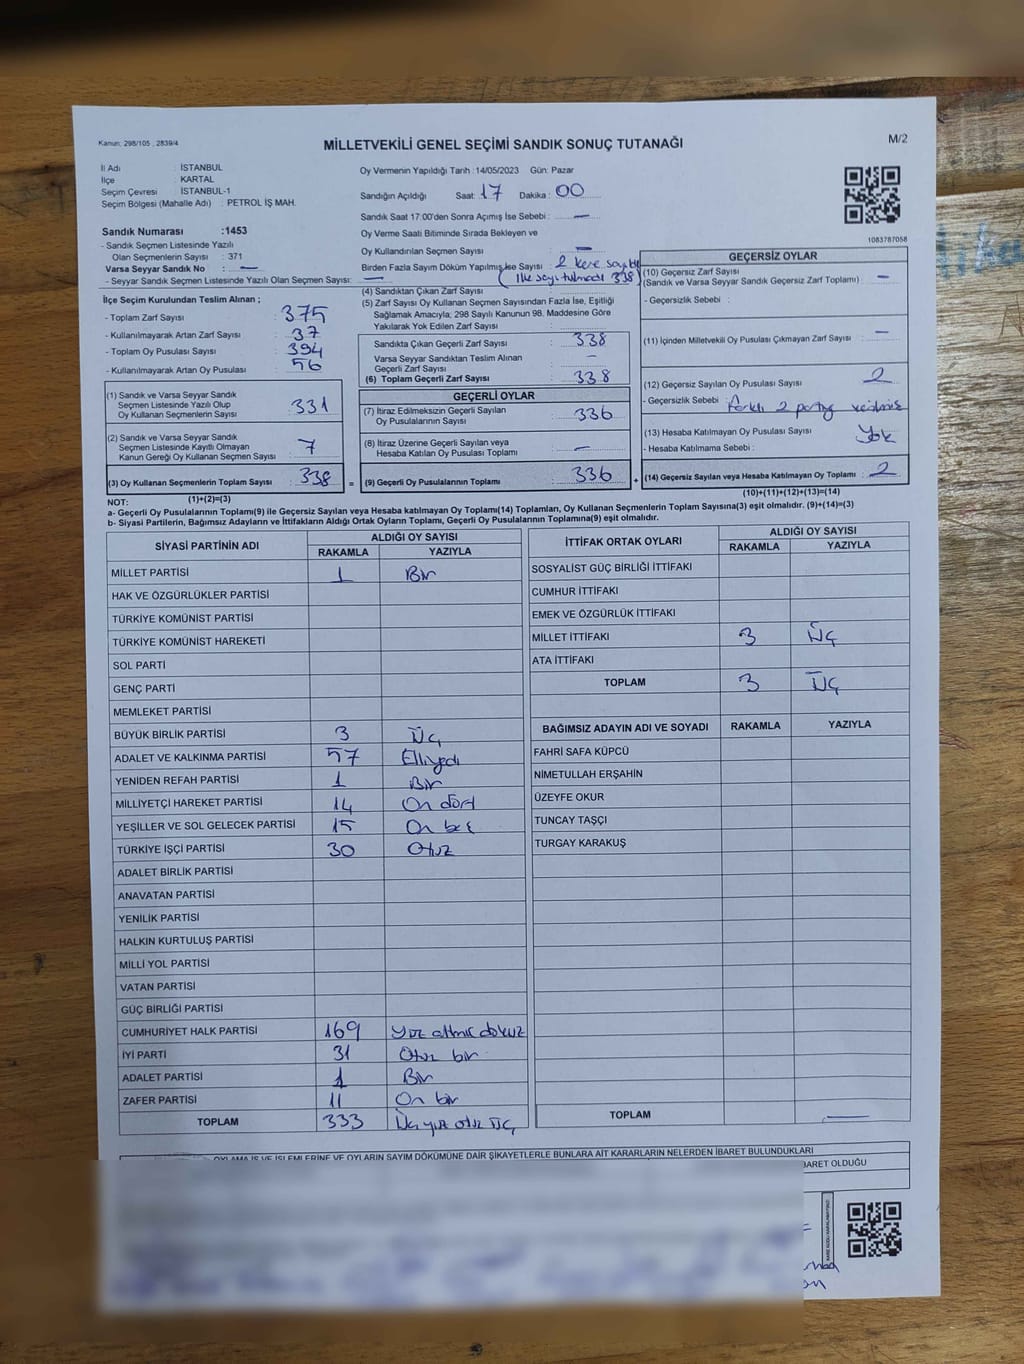 Kanun: 298/105 , 2839/4
MİLLETVEKİLİ GENEL SEÇİMİ SANDIK SONUÇ TUTANAĞI
M/2
İl Adı : İSTANBUL
İlçe : KARTAL
Seçim Çevresi : İSTANBUL-1
Seçim Bölgesi (Mahalle Adı) : PETROL İŞ MAH.
Sandık Numarası :1453
- Sandık Seçmen Listesinde Yazılı
Olan Seçmenlerin Sayısı : 371
Varsa Seyyar Sandık No : —
- Seyyar Sandık Seçmen Listesinde Yazılı Olan Seçmen Sayısı: —
Oy Vermenin Yapıldığı Tarih : 14/05/2023 Gün: Pazar
Sandığın Açıldığı Saat: 17 Dakika : 00
Sandık Saat 17:00'den Sonra Açımış İse Sebebi : —
Oy Verme Saati Bitiminde Sırada Bekleyen ve
Oy Kullandırılan Seçmen Sayısı : —
Birden Fazla Sayım Döküm Yapılmış İse Sayısı : 2 kere sayıldı
(İlk sayı tutmadı 338)
1083787058
İlçe Seçim Kurulundan Teslim Alınan ;
- Toplam Zarf Sayısı : 375
- Kullanılmayarak Artan Zarf Sayısı : 37
- Toplam Oy Pusulası Sayısı : 394
- Kullanılmayarak Artan Oy Pusulası : 56
(1) Sandık ve Varsa Seyyar Sandık
Seçmen Listesinde Yazılı Olup
Oy Kullanan Seçmenlerin Sayısı : 331
(2) Sandık ve Varsa Seyyar Sandık
Seçmen Listesinde Kayıtlı Olmayan
Kanun Gereği Oy Kullanan Seçmen Sayısı : 7
(3) Oy Kullanan Seçmenlerin Toplam Sayısı : 338
(4) Sandıktan Çıkan Zarf Sayısı :
(5) Zarf Sayısı Oy Kullanan Seçmen Sayısından Fazla İse, Eşitliği
Sağlamak Amacıyla; 298 Sayılı Kanunun 98. Maddesine Göre
Yakılarak Yok Edilen Zarf Sayısı :
Sandıkta Çıkan Geçerli Zarf Sayısı : 338
Varsa Seyyar Sandıktan Teslim Alınan
Geçerli Zarf Sayısı : —
(6) Toplam Geçerli Zarf Sayısı : 338
GEÇERLİ OYLAR
(7) İtiraz Edilmeksizin Geçerli Sayılan
Oy Pusulalarının Sayısı : 336
(8) İtiraz Üzerine Geçerli Sayılan veya
Hesaba Katılan Oy Pusulası Toplamı : —
= (9) Geçerli Oy Pusulalarının Toplamı : 336
GEÇERSİZ OYLAR
(10) Geçersiz Zarf Sayısı
(Sandık ve Varsa Seyyar Sandık Geçersiz Zarf Toplamı) : —
- Geçersizlik Sebebi :
(11) İçinden Milletvekili Oy Pusulası Çıkmayan Zarf Sayısı : —
(12) Geçersiz Sayılan Oy Pusulası Sayısı : 2
- Geçersizlik Sebebi : Farklı 2 partiye verilmiş
(13) Hesaba Katılmayan Oy Pusulası Sayısı : Yok
- Hesaba Katılmama Sebebi :
+ (14) Geçersiz Sayılan veya Hesaba Katılmayan Oy Toplamı : 2
NOT: (1)+(2)=(3)
(10)+(11)+(12)+(13)=(14)
a- Geçerli Oy Pusulalarının Toplamı(9) ile Geçersiz Sayılan veya Hesaba katılmayan Oy Toplamı(14) Toplamları, Oy Kullanan Seçmenlerin Toplam Sayısına(3) eşit olmalıdır. (9)+(14)=(3)
b- Siyasi Partilerin, Bağımsız Adayların ve İttifakların Aldığı Ortak Oyların Toplamı, Geçerli Oy Pusulalarının Toplamına(9) eşit olmalıdır.
SİYASİ PARTİNİN ADI
ALDIĞI OY SAYISI
RAKAMLA YAZIYLA
MİLLET PARTİSİ 1 Bir
HAK VE ÖZGÜRLÜKLER PARTİSİ
TÜRKİYE KOMÜNİST PARTİSİ
TÜRKİYE KOMÜNİST HAREKETİ
SOL PARTİ
GENÇ PARTİ
MEMLEKET PARTİSİ
BÜYÜK BİRLİK PARTİSİ 3 Üç
ADALET VE KALKINMA PARTİSİ 57 Elliyedi
YENİDEN REFAH PARTİSİ 1 Bir
MİLLİYETÇİ HAREKET PARTİSİ 14 On dört
YEŞİLLER VE SOL GELECEK PARTİSİ 15 On beş
TÜRKİYE İŞÇİ PARTİSİ 30 Otuz
ADALET BİRLİK PARTİSİ
ANAVATAN PARTİSİ
YENİLİK PARTİSİ
HALKIN KURTULUŞ PARTİSİ
MİLLİ YOL PARTİSİ
VATAN PARTİSİ
GÜÇ BİRLİĞİ PARTİSİ
CUMHURİYET HALK PARTİSİ 169 Yüz altmış dokuz
İYİ PARTİ 31 Otuz bir
ADALET PARTİSİ 1 Bir
ZAFER PARTİSİ 11 On bir
TOPLAM 333 Üç yüz otuz üç
İTTİFAK ORTAK OYLARI
ALDIĞI OY SAYISI
RAKAMLA YAZIYLA
SOSYALİST GÜÇ BİRLİĞİ İTTİFAKI
CUMHUR İTTİFAKI
EMEK VE ÖZGÜRLÜK İTTİFAKI
MİLLET İTTİFAKI 3 Üç
ATA İTTİFAKI
TOPLAM 3 Üç
BAĞIMSIZ ADAYIN ADI VE SOYADI RAKAMLA YAZIYLA
FAHRİ SAFA KÜPCÜ
NİMETULLAH ERŞAHİN
ÜZEYFE OKUR
TUNCAY TAŞÇI
TURGAY KARAKUŞ
TOPLAM —
OYLAMA İŞ VE İŞLEMLERİNE VE OYLARIN SAYIM DÖKÜMÜNE DAİR ŞİKAYETLERLE BUNLARA AİT KARARLARIN NELERDEN İBARET BULUNDUKLARI
BARET OLDUĞU